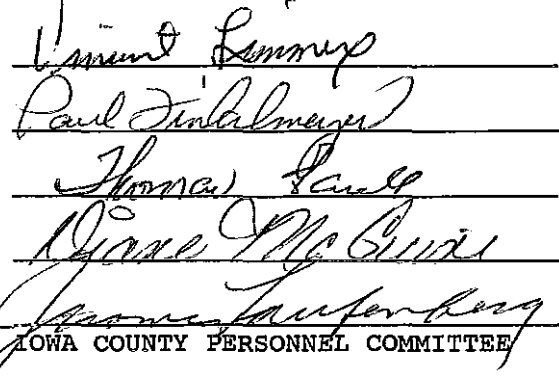 Vincent Limmex
Paul
Thomas Paull
Diane McGuire
Laufenberg
IOWA COUNTY PERSONNEL COMMITTEE